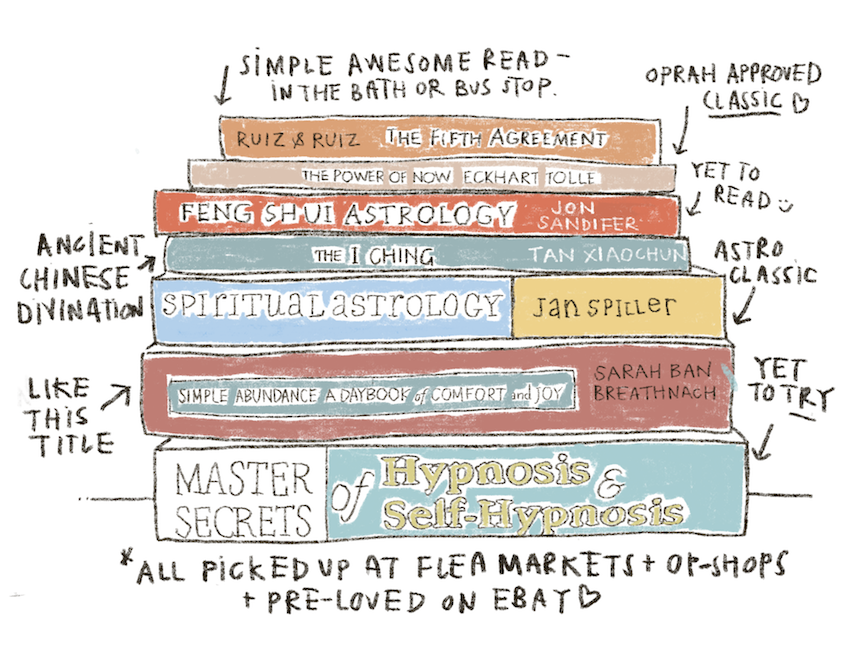 SIMPLE AWESOME READ -
IN THE BATH OR BUS STOP.
OPRAH APPROVED
CLASSIC ♡
RUIZ & RUIZ THE FIFTH AGREEMENT
THE POWER OF NOW ECKHART TOLLE
YET TO
READ
FENG SHUI ASTROLOGY
JON
SANDIFER
ANCIENT
CHINESE
DIVINATION
THE I CHING TAN XIAOCHUN
ASTRO
CLASSIC
SPIRITUAL ASTROLOGY Jan SPILLER
LIKE
THIS
TITLE
SIMPLE ABUNDANCE A DAYBOOK of COMFORT and JOY
SARAH BAN
BREATHNACH
YET
TO TRY
MASTER
SECRETS
of Hypnosis &
Self-Hypnosis
*ALL PICKED UP AT FLEA MARKETS + OP-SHOPS
+ PRE-LOVED ON EBAY ♡